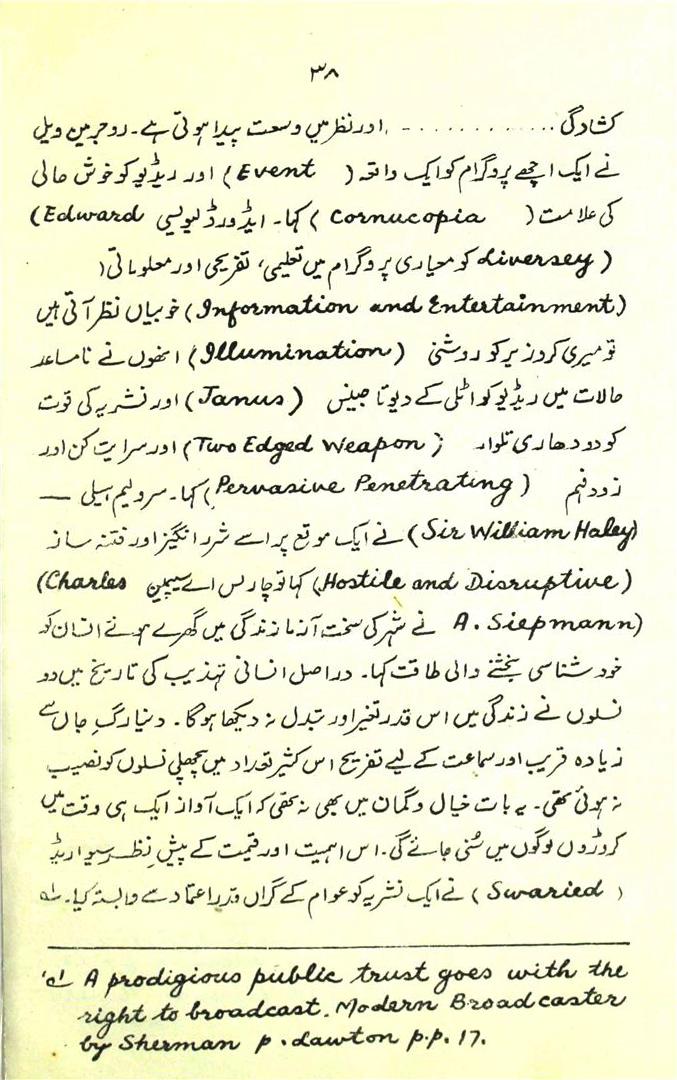 ۳۸
کشادگی ............ اور نظر میں وسعت پیدا ہوتی ہے۔ روجر مین ویل
نے ایک اچھے پروگرام کو ایک واقعہ (Event) اور ریڈیو کو خوش حالی
کی علامت (Cornucopia) کہا۔ ایڈورڈ لیوسی (Edward
Liversey) کو معیاری پروگرام میں تعلیمی، تفریحی اور معلوماتی (
(Information and Entertainment) خوبیاں نظر آتی ہیں
تو میری کروزیر کو روشنی (Illumination) انھوں نے نامساعد
حالات میں ریڈیو کو اٹلی کے دیوتا جینس (Janus) اور نشریہ کی قوت
کو دو دھاری تلوار (Two Edged Weapon) اور سرایت کن اور
زود فہم (Pervasive Penetrating) کہا۔ سر ولیم ہیلی —
(Sir William Haley) نے ایک موقع پر اسے شر انگیز اور فتنہ ساز
(Hostile and Disruptive) کہا تو چارلس اے سیپمن (Charles
A. Siepmann) نے شہر کی سخت آزما زندگی میں گھرے ہوئے انسان کو
خود شناسی بخشنے والی طاقت کہا۔ دراصل انسانی تہذیب کی تاریخ میں دو
نسلوں نے زندگی میں اس قدر تغیر اور تبدل نہ دیکھا ہوگا۔ دنیا رگِ جاں سے
زیادہ قریب اور سماعت کے لیے تفریح اس کثیر تعداد میں پچھلی نسلوں کو نصیب
نہ ہوئی تھی۔ یہ بات خیال و گمان میں بھی نہ تھی کہ ایک آواز ایک ہی وقت میں
کروڑوں لوگوں میں سُنی جائے گی۔ اس اہمیت اور قیمت کے پیشِ نظر سیواریڈ
(Swaried) نے ایک نشریہ کو عوام کے گراں قدر اعتماد سے وابستہ کیا۔ ۱ؔ
۱ؔ A prodigious public trust goes with the
right to broadcast. Modern Broadcaster
by Sherman P. Lawton p.p. 17.